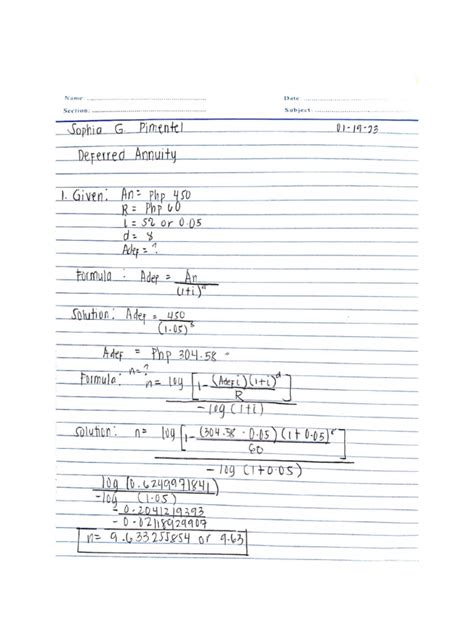 Name: Date:
Section: Subject:
Sophia G. Pimentel 01-19-23
Deferred Annuity
1. Given: An = Php 450
R = Php 60
i = 5% or 0.05
d = 8
Adef = ?
Formula : Adef = An
(1+i)^d
Solution: Adef = 450
(1.05)^8
Adef = Php 304.58
n=?
Formula: n = log [1 - (Adef i)(1+i)^d]
R
- log (1+i)
Solution: n= log [1 - (304.58 · 0.05)(1+0.05)^8]
60
- log (1+0.05)
log (0.6249971841)
-log (1.05)
-0.2041219393
-0.02118929907
n= 9.633255854 or 9.63